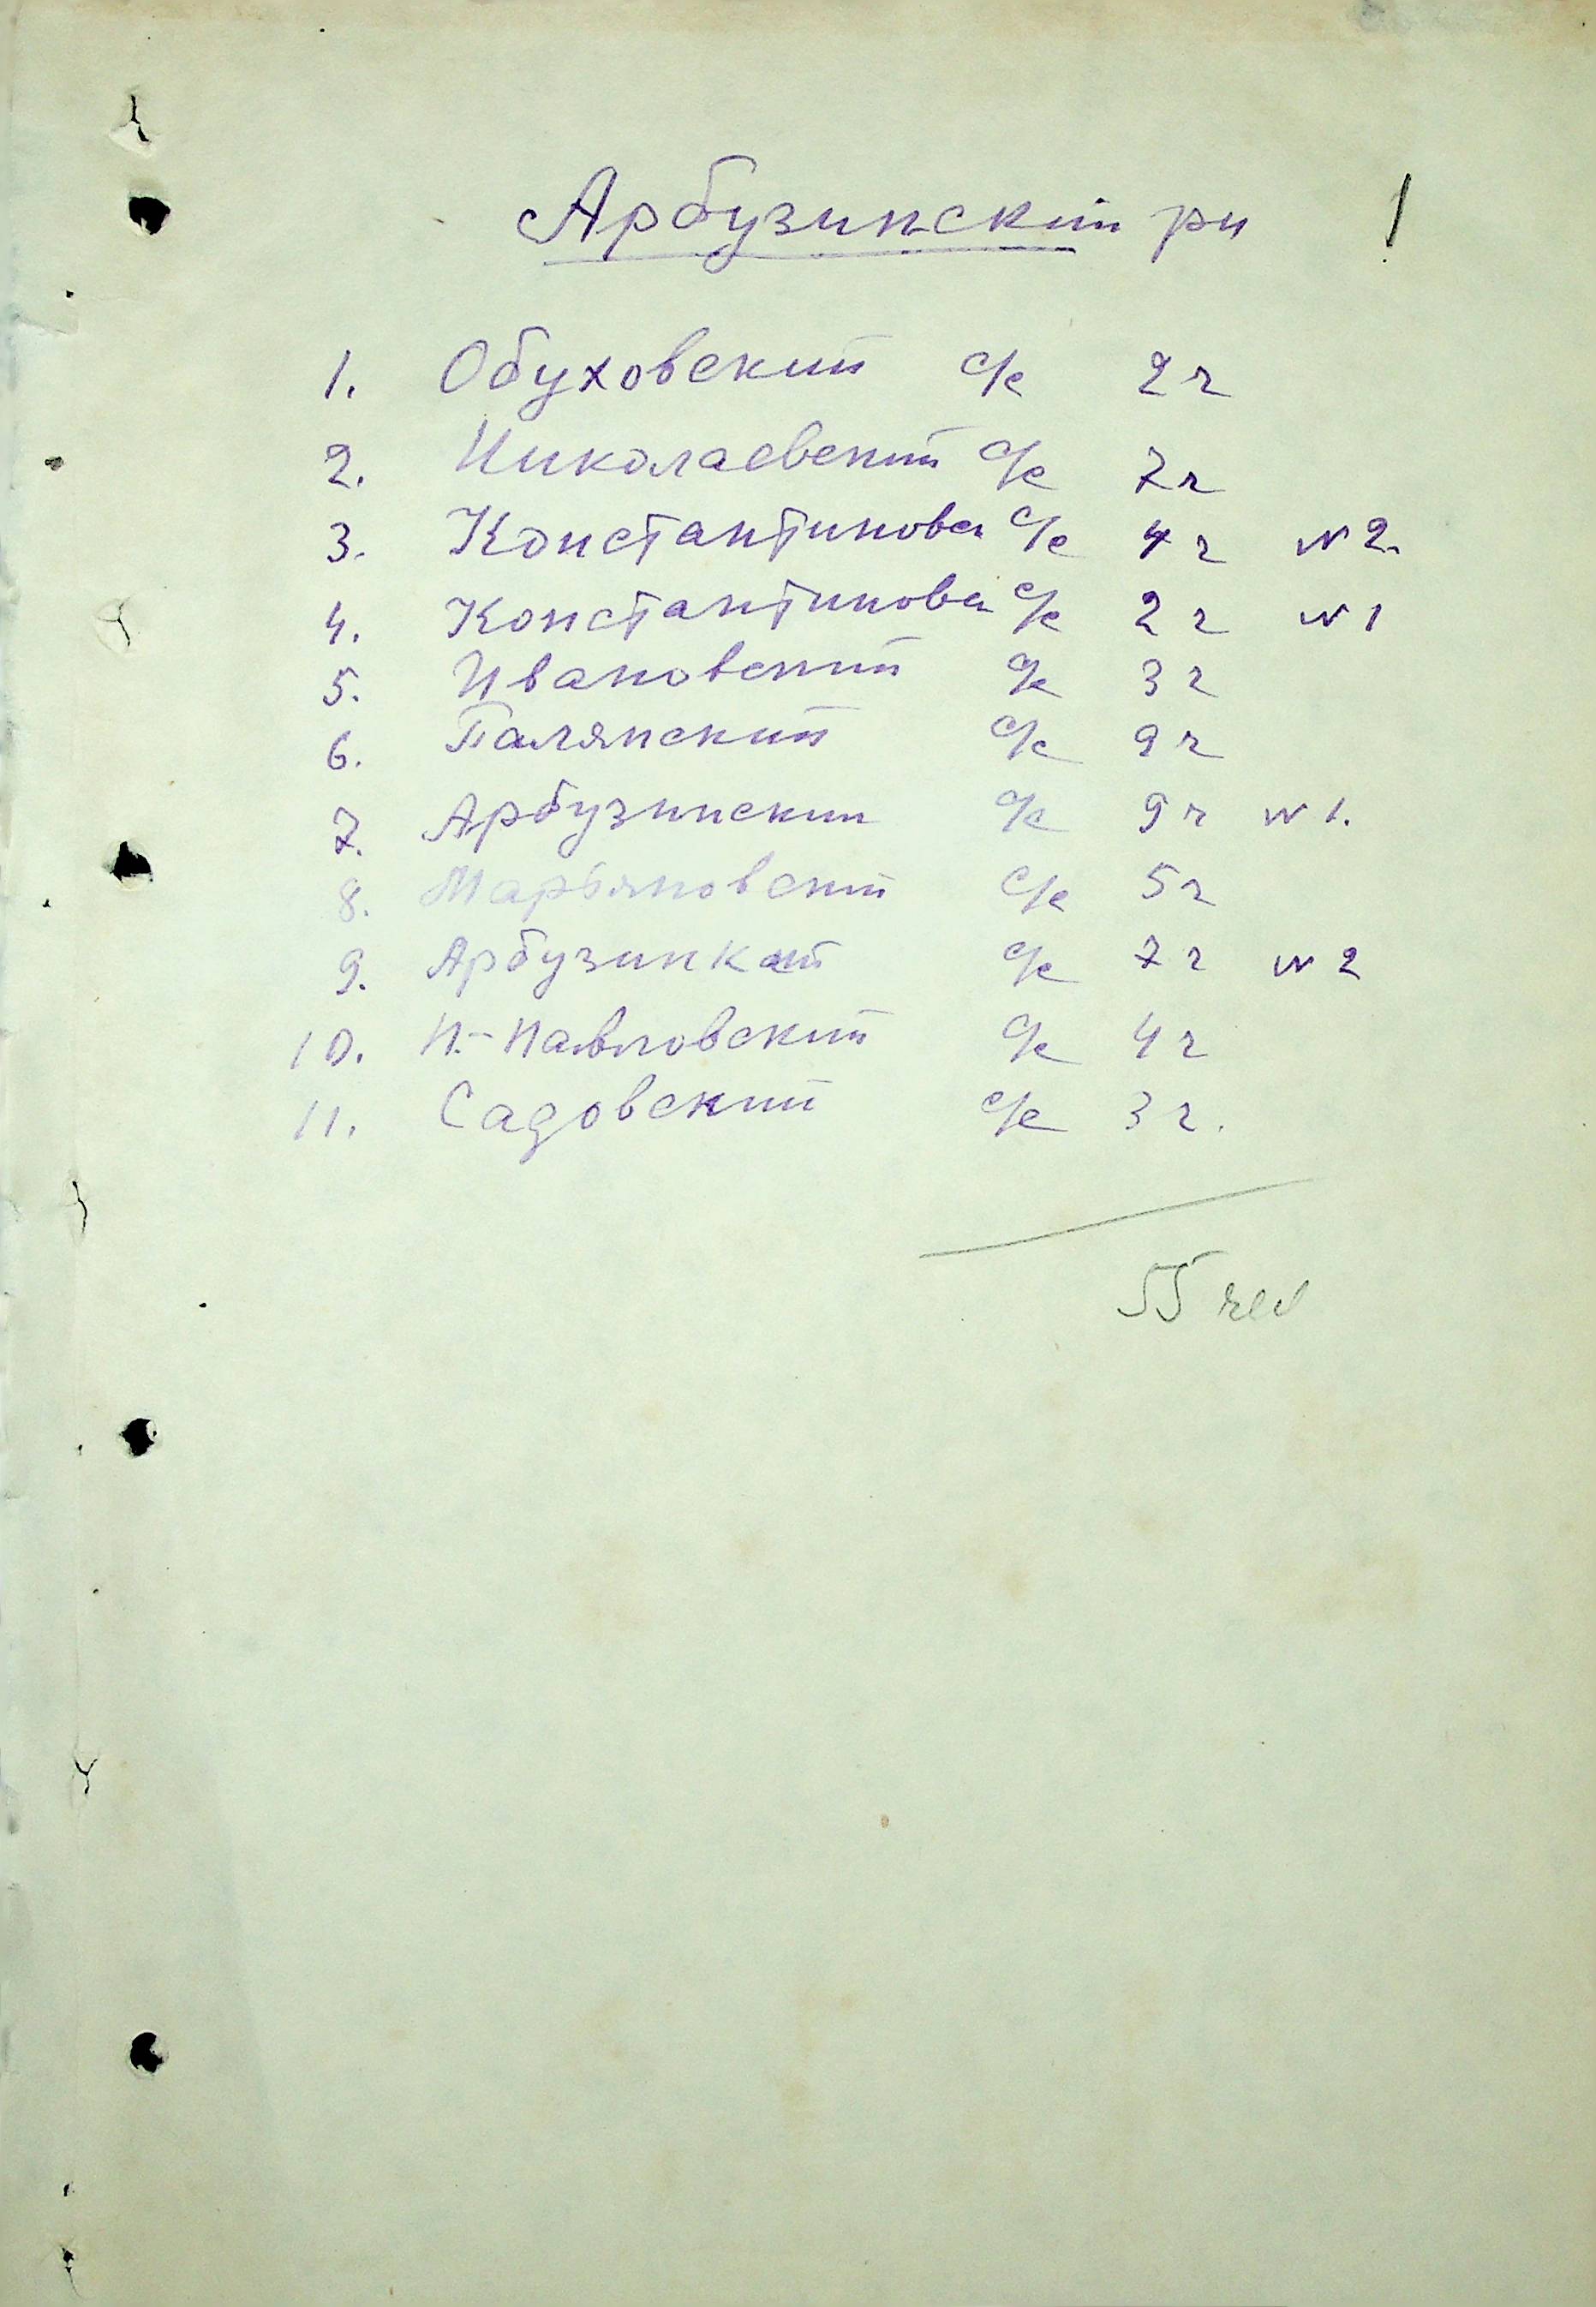 Арбузинский рн 1
1. Обуховский с/с 2 ч
2. Николаевский с/с 7 ч
3. Константинов с/с 4 ч № 2.
4. Константинов с/с 2 ч № 1
5. Ивановский с/с 3 ч
6. Палянский с/с 9 ч
7. Арбузинский с/с 9 ч № 1.
8. Марьяновский с/с 5 ч
9. Арбузинкий с/с 7 ч № 2
10. Н.-Павловский с/с 4 ч
11. Садовский с/с 3 ч.
55 чел